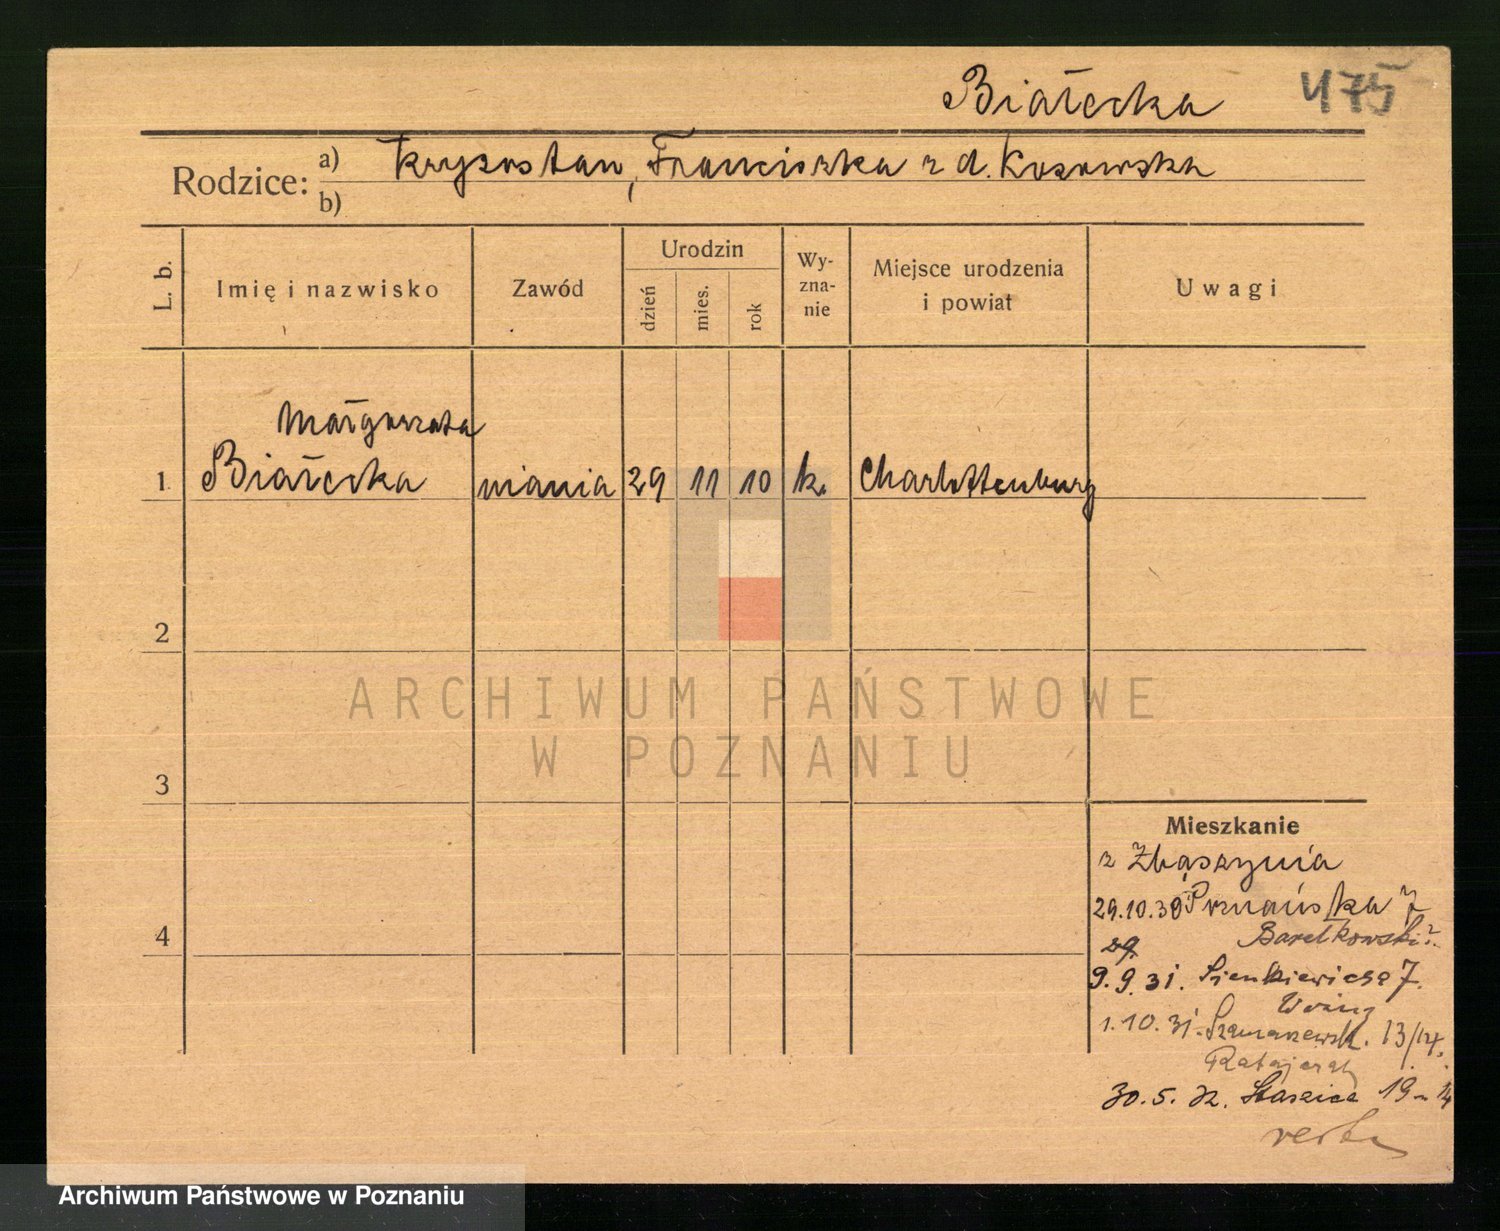 Białecka 475
Rodzice: a) Kryzostan, Franciszka z d. Kozowska
b)
L. b.
Imię i nazwisko
Zawód
Urodzin
dzień
mies.
rok
Wy-
zna-
nie
Miejsce urodzenia
i powiat
Uwagi
Małgorzata
1 Białecka niania 29 11 10 k. Charlottenburg
2
3
4
Mieszkanie
z Zbąszynia
29.10.30 Poznańska 7
29.
9.9.31. Sienkiewicza 7.
1.10.31. 13/14.
Ratajczak
30.5.32. Staszica 19
ARCHIWUM PAŃSTWOWE
W POZNANIU
Archiwum Państwowe w Poznaniu